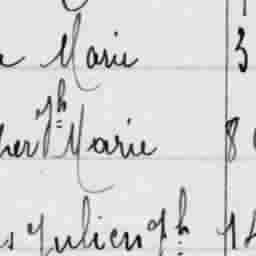 Marie 3
her Jh Marie 8
s Julien Jh 14